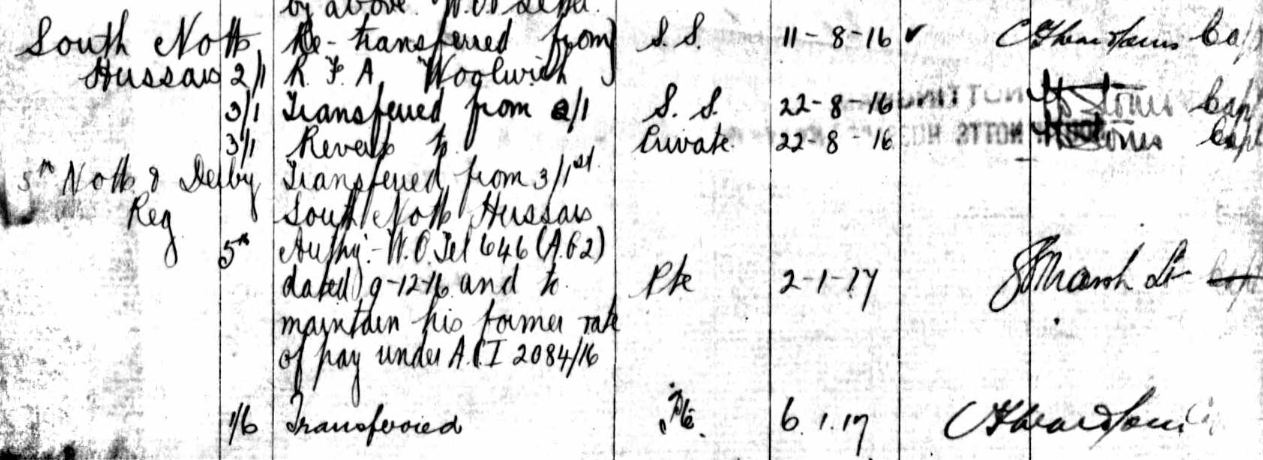 by above. W.O. Letter
South Notts Re-transferred from S.S. 11-8-16 Cap
Hussars 2/1 R.F.A. Woolwich
3/1 Transferred from 2/1 S.S. 22-8-16 Cap
3/1 Reverts to Private 22-8-16 Capt
5th Notts & Derby Transferred from 3/1st
Reg South Notts Hussars
5th Authy:- W.O. Tel 646 (A.G.2)
dated 9-12-16 and to Pte 2-1-17 Marsh Lt
maintain his former rate
of pay under A.C.I 2084/16
1/6 Transferred Pte. 6.1.17